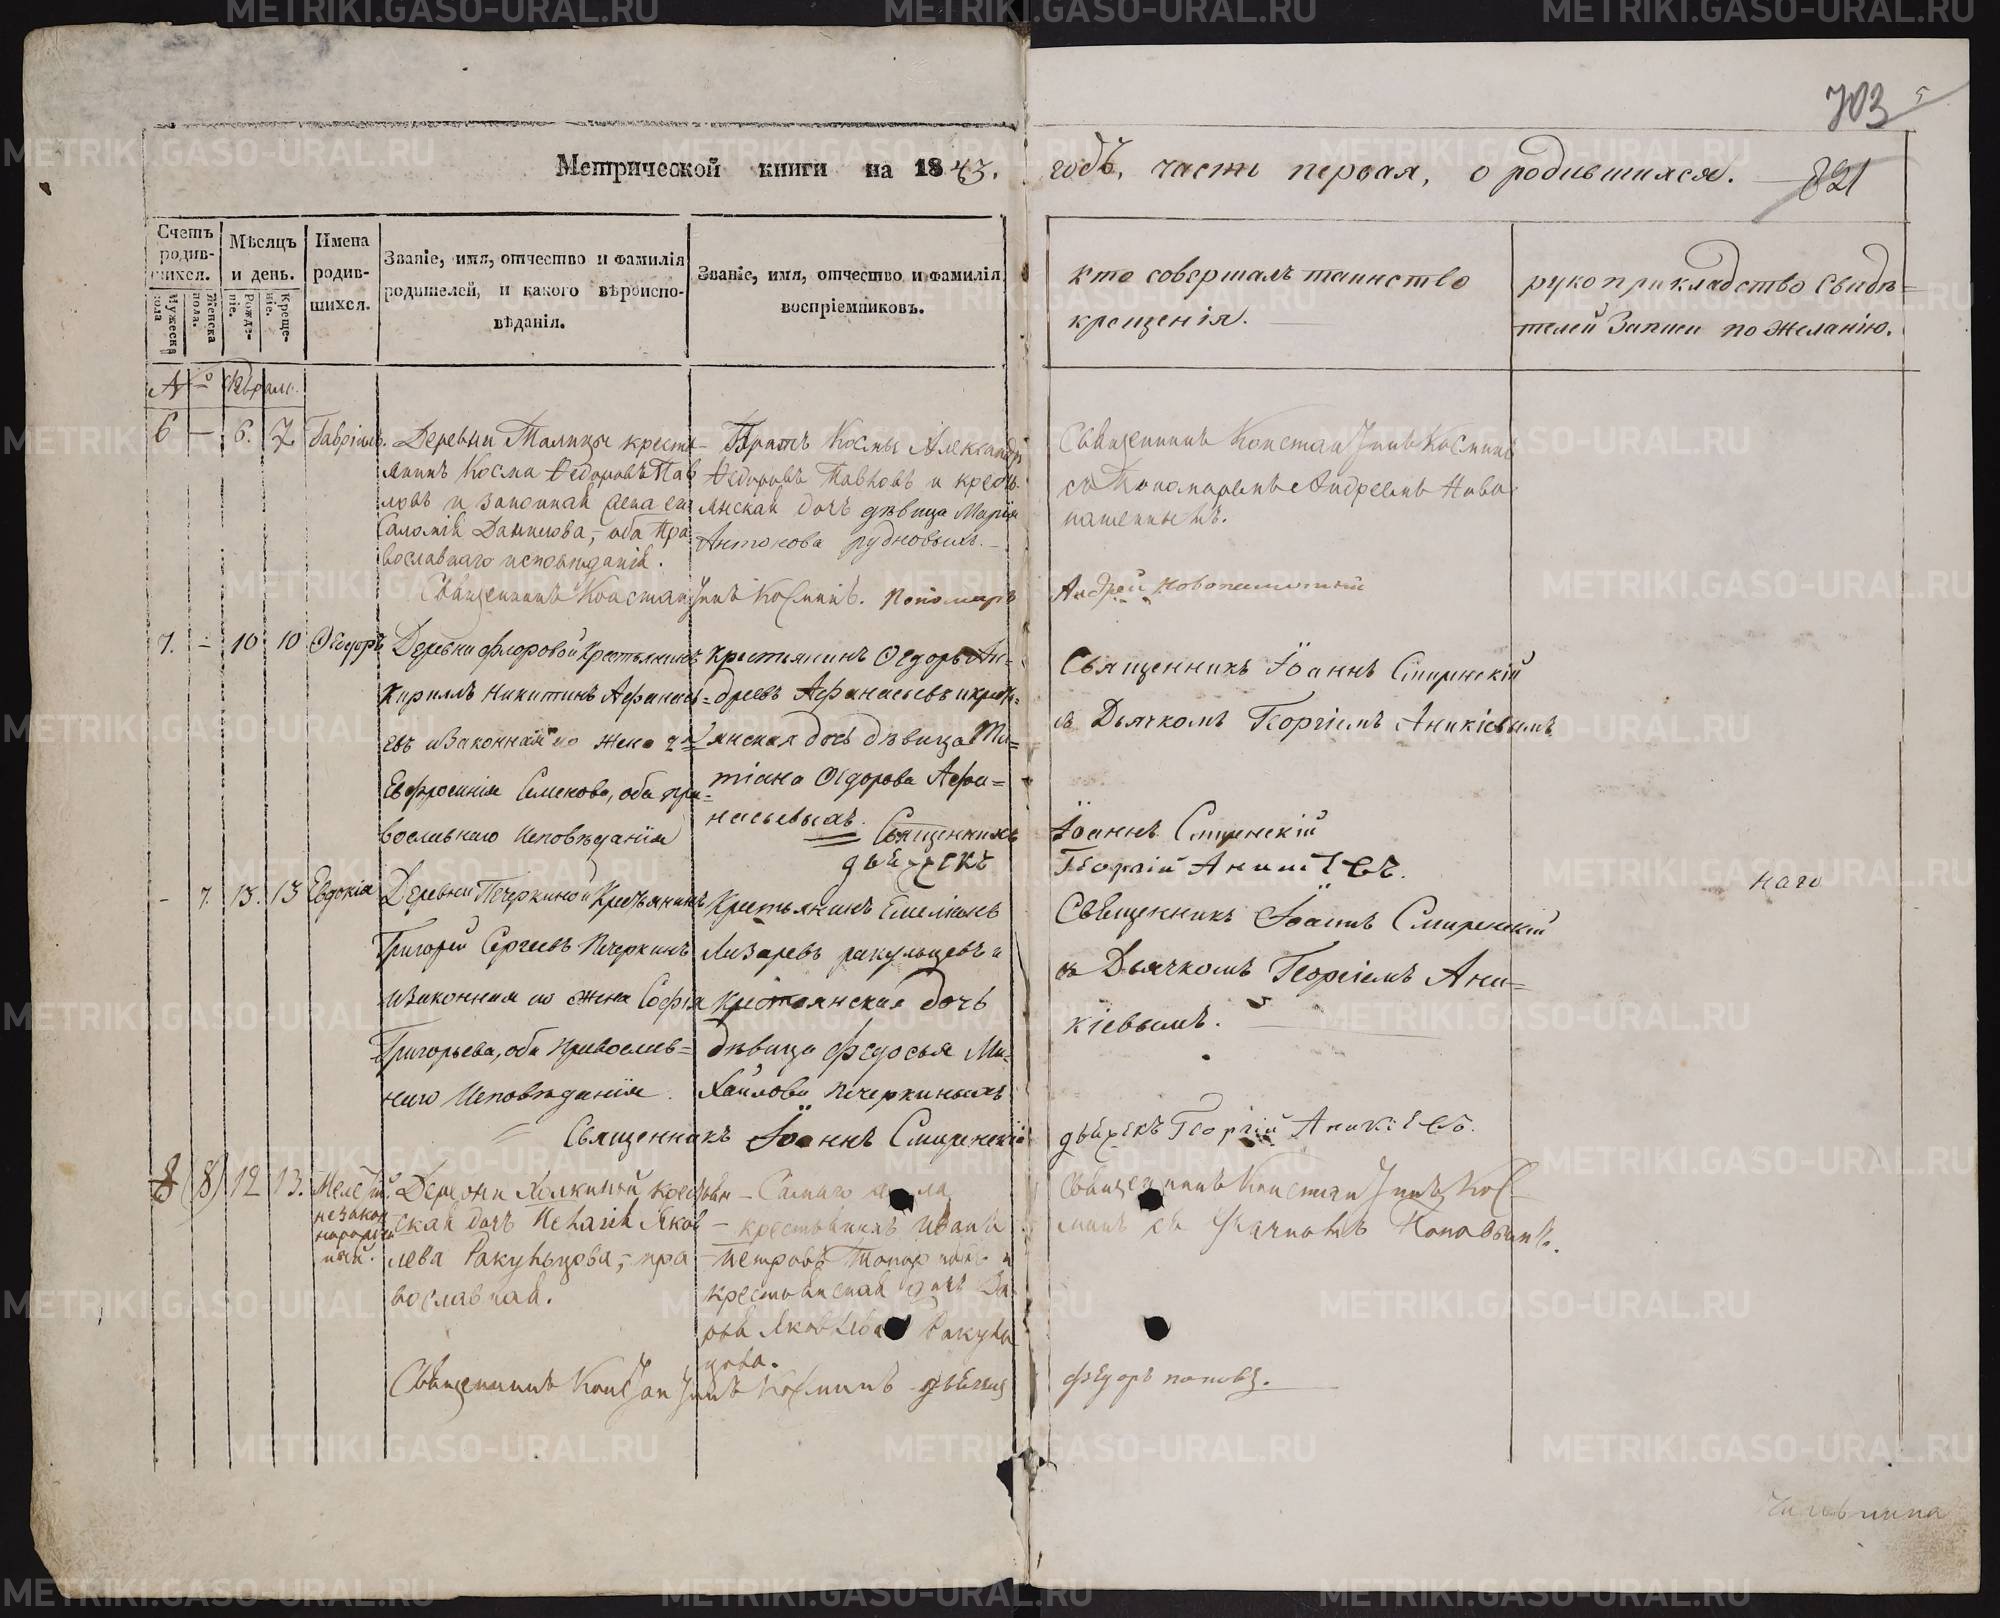 703
821
Метрической книги на 1843. годъ, часть первая, о родившихся.
Счетъ родив-шихся.
Мужеска пола
Женска пола.
Мѣсяцъ и день.
Рожде-нie.
Креще-нie.
Имена родив-шихся.
Званіе, имя, отчество и фамилія родителей, и какого вѣроиспо-вѣданія.
Званіе, имя, отчество и фамилія воспріемниковъ.
кто совершалъ таинство
крещенія.
рукоприкладство свидѣ=
телей записи по желанію.
6 — 6. 7. Гавріилъ.
Деревни Талицы крестья-
нинъ Косма Ѳедоровъ Пав
ловъ и законная жена его
Саломія Данилова, оба пра
вославнаго исповѣданія.
Братъ Космы Александръ
Ѳедоровъ Павловъ и кресть
янская дочь дѣвица Марія
Антонова Рудновыхъ.
Священникъ Константинъ Косминъ
съ Пономаремъ Андреемъ Ново
пашеннымъ.
Священникъ Константинъ Косминъ. Пономарь
Андрей Новопашенный
7. — 10 10 Ѳеодоръ
Деревни Флоровой Крестьянинъ
Кирилъ Никитинъ Афанась=
евъ и Законная его жена
Евфросинія Семенова, оба пра=
вославнаго Исповѣданія
Крестьянинъ Ѳедоръ Ан=
дреевъ Афанасьевъ и крестъ=
янская дочь дѣвица Та=
тіана Ѳедорова Афа=
насьевыхъ.
Священникъ
дьячекъ
Священникъ Іоаннъ Смиренскій
съ Дьячкомъ Георгіемъ Аникіевымъ
Іоаннъ Смиренскій
Георгій Аникіевъ.
— 7. 13. 13 Евдокія
Деревни Печеркиной Крестьянинъ
Григорей Сергеевъ Печеркинъ
и Законная его жена Софія
Григорьева, оба Православ=
наго Исповѣданія.
Крестьянинъ Емеліанъ
Лазаревъ ракульцевъ и
Крестьянская дочь
дѣвица Федосья Ми-
хайлова Печеркиныхъ
Священникъ Іоаннъ Смиренскій
съ Дьячкомъ Георгіемъ Ани=
кіевымъ.
наго
Священникъ Іоаннъ Смиренскій
дьячекъ Георгій Аникіевъ.
8 (8) 12 13. Мелетій.
незакон
норожден
ный.
Деревни Холкиной крестьян
ская дочь Пелагія Яков
лева Ракульцова, пра
вославная.
Самаго села
крестьянинъ Иванъ
Петровъ и
крестьянская дочь
Яковлева Ракуль
цова.
Священникъ Константинъ Кос
минъ съ Дьячкомъ Поповымъ.
Священникъ Константинъ Косминъ дьячекъ
Федоръ поповъ.